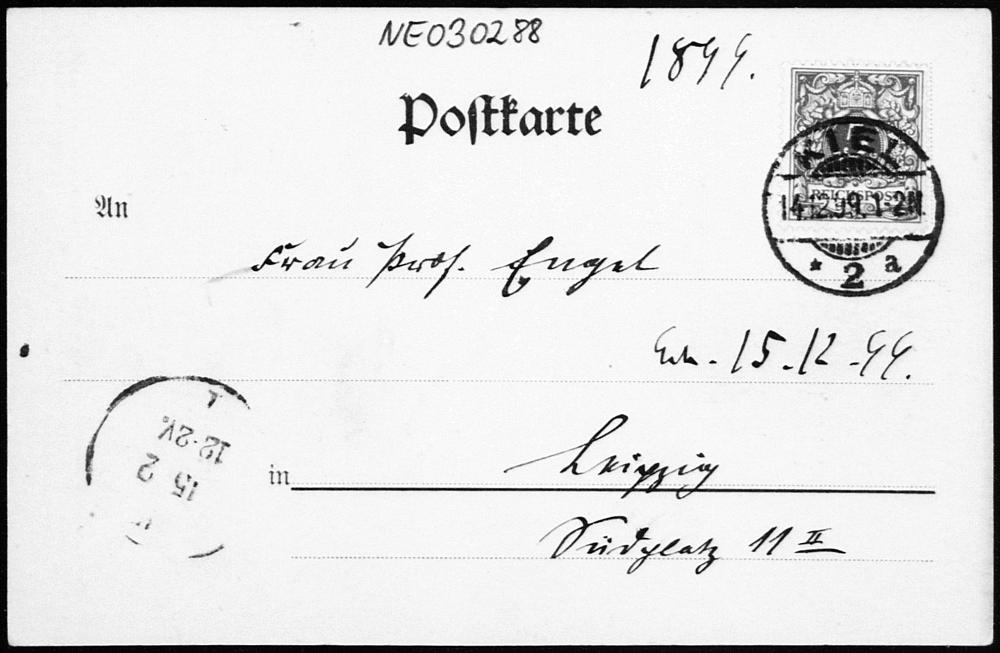 NE030288
1899.
Postkarte
KIEL
REICHSPOST
14.12.99. 1-2N.
* 2 a
An
Frau Prof. Engel
Erh. 15.12.99.
12-2V.
15 2
in Leipzig
Südplatz 11 II